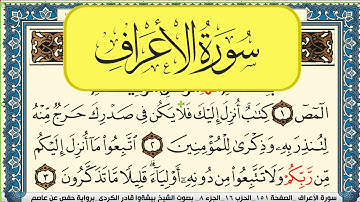 سُورَةُ الأَعْرَافِ
الٓمٓصٓ ١ كِتَٰبٌ أُنزِلَ إِلَيْكَ فَلَا يَكُن فِى صَدْرِكَ حَرَجٌ مِّنْهُ
لِتُنذِرَ بِهِۦ وَذِكْرَىٰ لِلْمُؤْمِنِينَ ٢ ٱتَّبِعُوا۟ مَآ أُنزِلَ إِلَيْكُم
مِّن رَّبِّكُمْ وَلَا تَتَّبِعُوا۟ مِن دُونِهِۦٓ أَوْلِيَآءَ قَلِيلًا مَّا تَذَكَّرُونَ ٣
سورة الأعراف الصفحة ١٥١ الحزب ١٦ الجزء ٨ بصوت الشيخ بيشةوا قادر الكردي برواية حفص عن عاصم